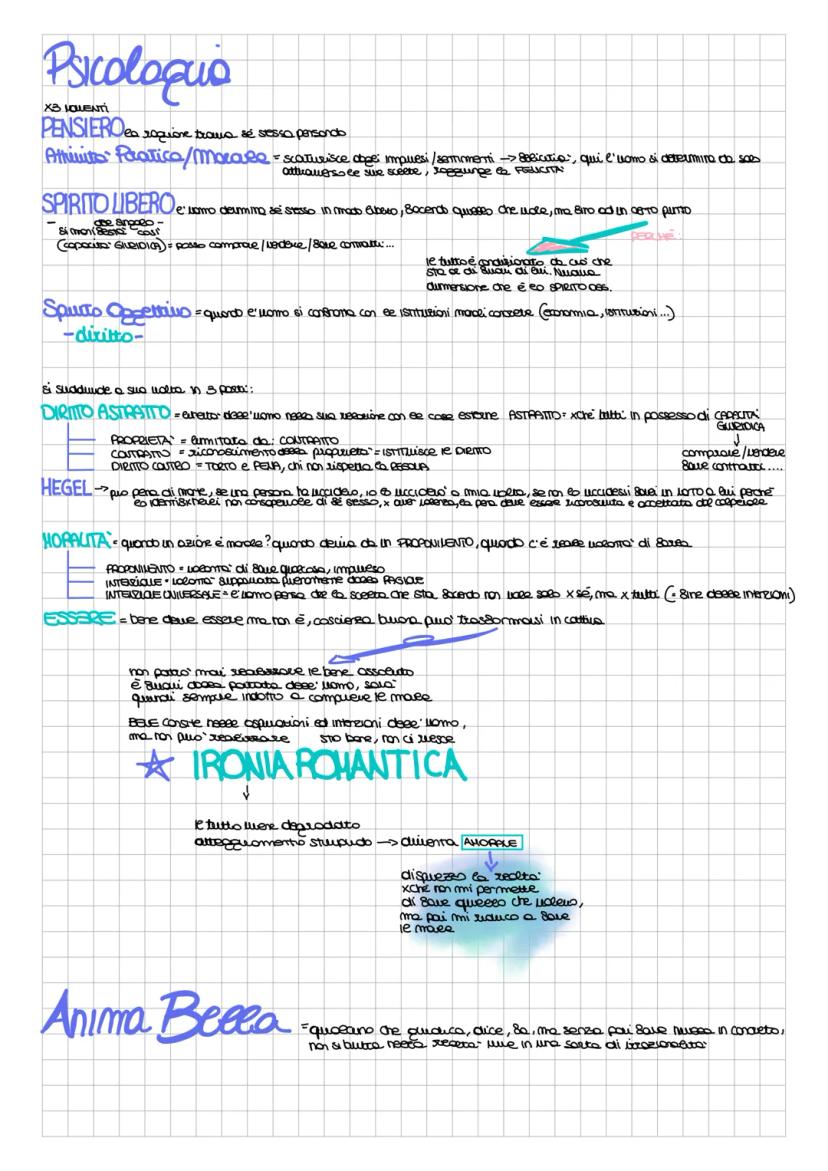 Psicologia
X3 MOMENTI
PENSIERO la ragione trova sé stessa pensando
Attività Pratica/Morale = scaturisce dagli impulsi/sentimenti → felicità, qui l'uomo si determina da solo
attraverso le sue scelte, raggiunge la FELICITÀ
SPIRITO LIBERO l'uomo determina sé stesso in modo libero, facendo quello che vuole, ma fino ad un certo punto
- del singolo -
si manifesta così
(capacità GIURIDICA) = posso comprare/vendere/fare contratti...
PERCHÉ
le tutto è condizionato da ciò che
sta al di fuori di lui. Nuova
dimensione che è lo SPIRITO OGG.
Spirito Oggettivo = quando l'uomo si confronta con le istituzioni morali concrete (economia, istituzioni...)
-diritto-
si suddivide a sua volta in 3 parti:
DIRITTO ASTRATTO = diritto dell'uomo nella sua relazione con le cose esterne ASTRATTO = xché tutti in possesso di CAPACITÀ
GIURIDICA
PROPRIETÀ = limitata da: CONTRATTO
CONTRATTO = riconoscimento della proprietà = ISTITUISCE le DIRITTO
DIRITTO CONTRO = TORTO e PENA, chi non rispetta la REGOLA
comprare/vendere
fare contratti....
HEGEL → può pena di morte, se una persona ha ucciso, io lo ucciderò a mia volta, se non lo uccidessi farei un torto a lui perché
lo identificherei non consapevole di sé stesso, x aver valenza, la pena deve essere riconosciuta e accettata dal colpevole
MORALITÀ = quando un azione è morale? quando deriva da un PROPONIMENTO, quando c'è reale volontà di farla
PROPONIMENTO = volontà di fare qualcosa, impulso
INTENZIONE = volontà supportata pienamente dalla RAGIONE
INTENZIONE UNIVERSALE = l'uomo pensa che la scelta che sta facendo non vale solo x sé, ma x tutti (= fine delle intenzioni)
ESSERE = bene deve essere ma non è, coscienza buona può trasformarsi in cattiva
non potrò mai realizzare le bene assoluto
è fuori dalla portata dell'uomo, sarà
quindi sempre indotto a compiere le male
BENE consiste nelle aspirazioni ed intenzioni dell'uomo,
ma non può realizzare sto bene, non ci riesce
IRONIA ROMANTICA
le tutto viene degradato
atteggiamento stupido → diventa AMORALE
disprezzo la realtà
xché non mi permette
di fare quello che volevo,
ma poi mi riduco a fare
le male
Anima Bella = qualcuno che giudica, dice, fa, ma senza poi fare nulla in concreto,
non si butta nella realtà vive in una sorta di irrazionalità